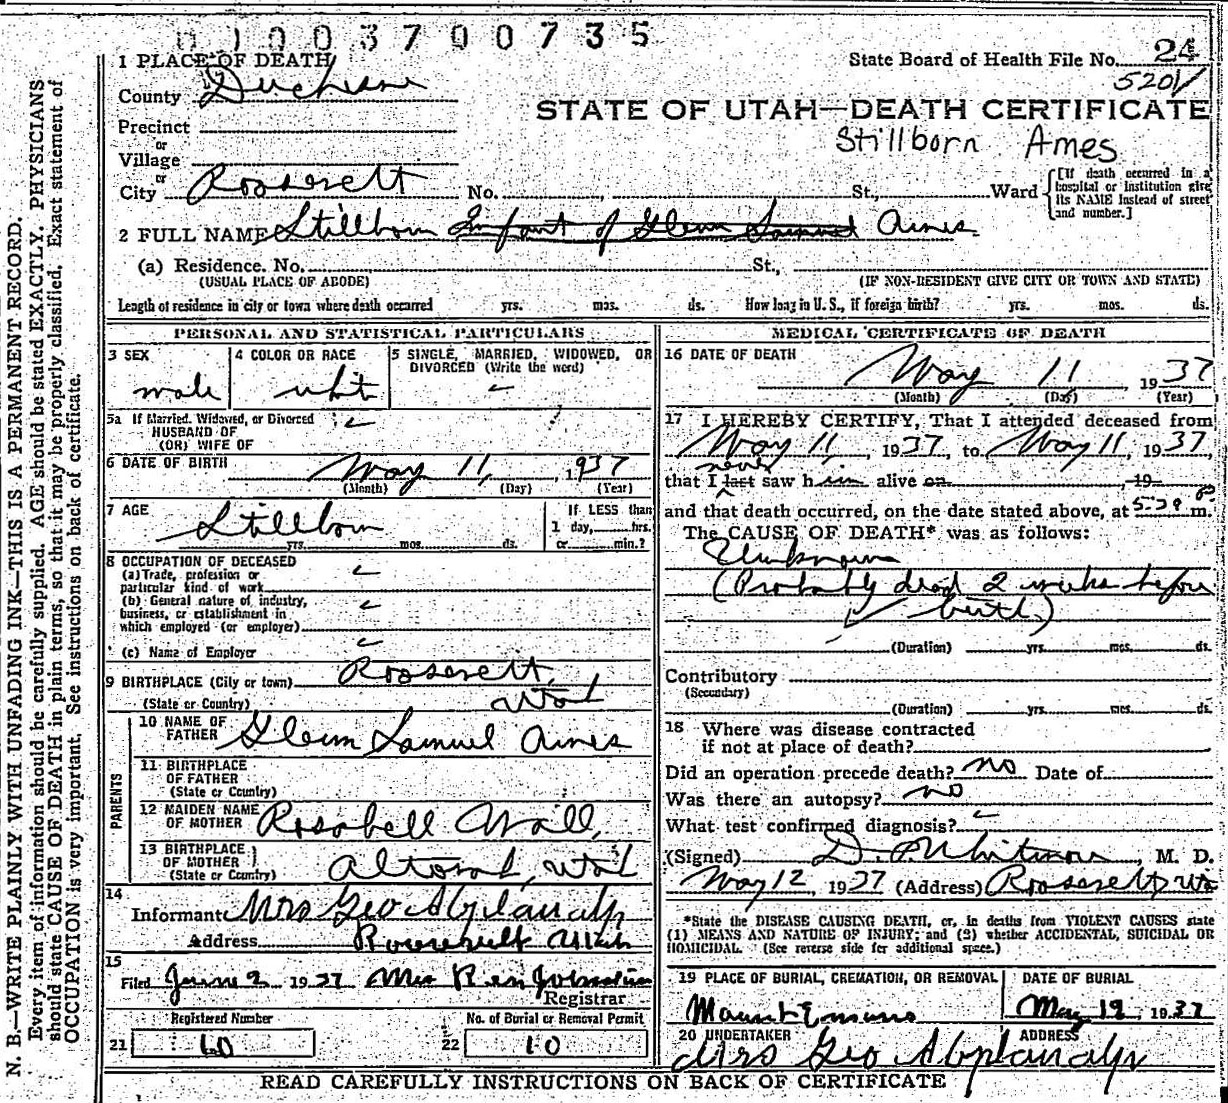 0100370 0735
1 PLACE OF DEATH
State Board of Health File No. 24
5201
County Duchesne
STATE OF UTAH—DEATH CERTIFICATE
Precinct
or
Stillborn Ames
Village
or
City Roosevelt No. St., Ward
[If death occurred in a hospital or institution give its NAME instead of street and number.]
2 FULL NAME Stillborn Infant of Glenn Samuel Ames
(a) Residence. No. St.,
(USUAL PLACE OF ABODE) (IF NON-RESIDENT GIVE CITY OR TOWN AND STATE)
Length of residence in city or town where death occurred yrs. mos. ds. How long in U. S., if foreign birth? yrs. mos. ds.
PERSONAL AND STATISTICAL PARTICULARS
3 SEX 4 COLOR OR RACE 5 SINGLE, MARRIED, WIDOWED, OR
DIVORCED (Write the word)
male whit
5a If Married, Widowed, or Divorced
HUSBAND OF
(OR) WIFE OF
6 DATE OF BIRTH May 11, 1937
(Month) (Day) (Year)
7 AGE Stillborn If LESS than
1 day, hrs.
yrs. mos. ds. or min.?
8 OCCUPATION OF DECEASED
(a) Trade, profession or
particular kind of work
(b) General nature of industry,
business, or establishment in
which employed (or employer)
(c) Name of Employer
9 BIRTHPLACE (City or town) Roosevelt,
(State or Country) Utah
PARENTS
10 NAME OF
FATHER Glenn Samuel Ames
11 BIRTHPLACE
OF FATHER
(State or Country)
12 MAIDEN NAME
OF MOTHER Rosabell Wall,
13 BIRTHPLACE
OF MOTHER
(State or Country) Altonah, Utah
14
Informant Mrs Geo Abplanalp
Address Roosevelt Utah
15
Filed June 2 1937 Mrs
Registrar
Registered Number No. of Burial or Removal Permit
21 60 22 10
MEDICAL CERTIFICATE OF DEATH
16 DATE OF DEATH
May 11, 1937
(Month) (Day) (Year)
17 I HEREBY CERTIFY, That I attended deceased from
May 11, 1937, to May 11, 1937,
never
that I last saw him alive on 19
and that death occurred, on the date stated above, at 5-29 P m.
The CAUSE OF DEATH* was as follows:
Unknown
(Probably dead 2 weeks before
birth)
(Duration) yrs. mos. ds.
Contributory
(Secondary)
(Duration) yrs. mos. ds.
18 Where was disease contracted
if not at place of death?
Did an operation precede death? no Date of
Was there an autopsy? no
What test confirmed diagnosis?
(Signed) Whitmore, M. D.
May 12, 1937 (Address) Roosevelt, Uta
*State the DISEASE CAUSING DEATH, or, in deaths from VIOLENT CAUSES state
(1) MEANS AND NATURE OF INJURY; and (2) whether ACCIDENTAL, SUICIDAL OR
HOMICIDAL. (See reverse side for additional space.)
19 PLACE OF BURIAL, CREMATION, OR REMOVAL DATE OF BURIAL
Mount Emmons May 12 1937
20 UNDERTAKER ADDRESS
Mrs Geo Abplanalp
READ CAREFULLY INSTRUCTIONS ON BACK OF CERTIFICATE
N. B.—WRITE PLAINLY WITH UNFADING INK—THIS IS A PERMANENT RECORD.
Every item of information should be carefully supplied. AGE should be stated EXACTLY. PHYSICIANS
should state CAUSE OF DEATH in plain terms, so that it may be properly classified. Exact statement of
OCCUPATION is very important. See instructions on back of certificate.